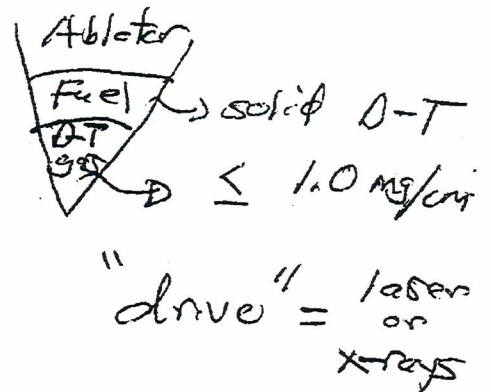 Ablator
Fuel → solid D-T
D-T
gas → ≤ 1.0 mg/cm
"drive" = laser
or
x-rays